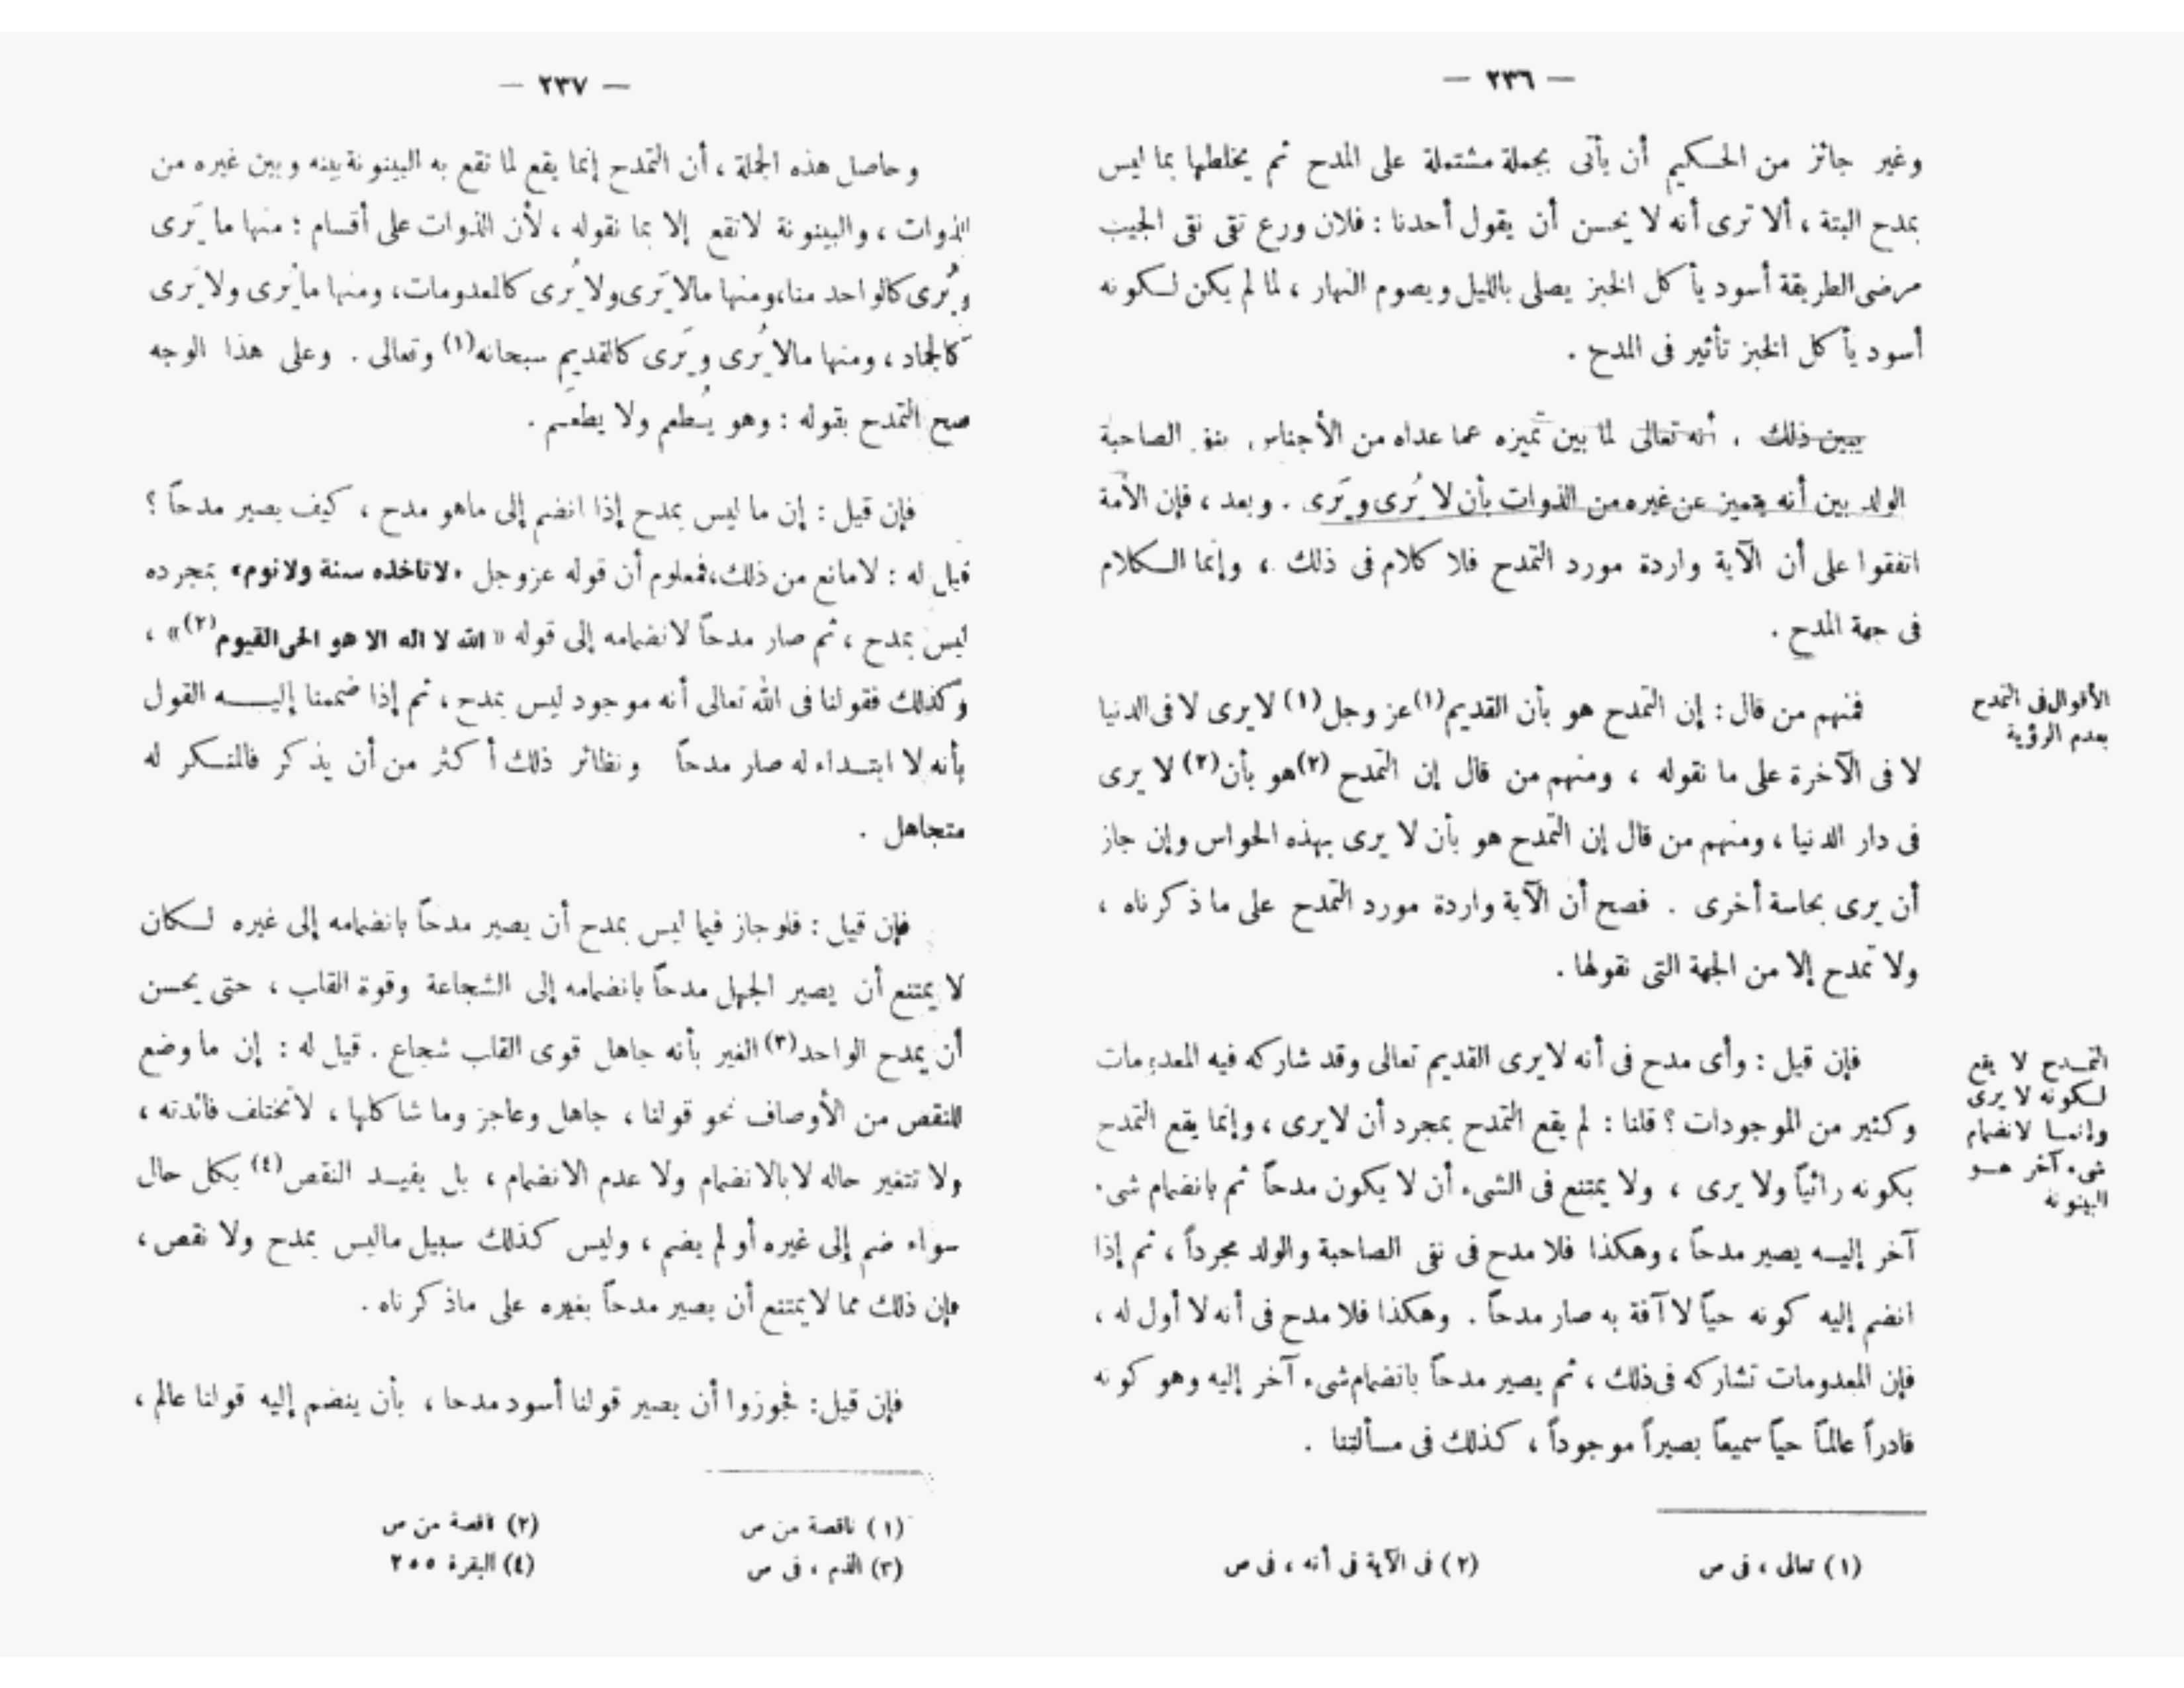 — ٢٣٦ —
وغير جائز من الحكيم أن يأتى بجملة مشتملة على المدح ثم يخلطها بما ليس
بمدح البتة ، ألا ترى أنه لا يحسن أن يقول أحدنا : فلان ورع تقى نقى الجيب
مرضى الطريقة أسود يأكل الخبز يصلى بالليل ويصوم النهار ، لما لم يكن لكونه
أسود يأكل الخبز تأثير فى المدح .
يبين ذلك ، أنه تعالى لما بين تميزه عما عداه من الأجناس بنفى الصاحبة
الولد بين أنه يتميز عن غيره من الذوات بأن لا يُرى ويَرى . وبعد ، فإن الأمة
اتفقوا على أن الآية واردة مورد التمدح فلا كلام فى ذلك ، وإنما الكلام
فى جهة المدح .
الأقوال فى التمدح
بعدم الرؤية
فمنهم من قال : إن التمدح هو بأن القديم(١) عز وجل(١) لا يرى لا فى الدنيا
لا فى الآخرة على ما نقوله ، ومنهم من قال إن التمدح (٢)هو بأن(٢) لا يرى
فى دار الدنيا ، ومنهم من قال إن التمدح هو بأن لا يرى بهذه الحواس وإن جاز
أن يرى بحاسة أخرى . فصح أن الآية واردة مورد التمدح على ما ذكرناه ،
ولا تمدح إلا من الجهة التى نقولها .
التمدح لا يقع
لكونه لا يرى
وإنما لانضمام
شىء آخر هو
البينونه
فإن قيل : وأى مدح فى أنه لا يرى القديم تعالى وقد شاركه فيه المعدومات
وكثير من الموجودات ؟ قلنا : لم يقع التمدح بمجرد أن لا يرى ، وإنما يقع التمدح
بكونه رائياً ولا يرى ، ولا يمتنع فى الشىء أن لا يكون مدحاً ثم بانضمام شىء
آخر إليه يصير مدحاً ، وهكذا فلا مدح فى نفى الصاحبة والولد مجرداً ، ثم إذا
انضم إليه كونه حياً لا آفة به صار مدحاً . وهكذا فلا مدح فى أنه لا أول له ،
فإن المعدومات تشاركه فى ذلك ، ثم يصير مدحاً بانضمام شىء آخر إليه وهو كونه
قادراً عالماً حياً سميعاً بصيراً موجوداً ، كذلك فى مسألتنا .
(١) تعالى ، فى ص (٢) فى الآية فى أنه ، فى ص
— ٢٣٧ —
وحاصل هذه الجملة ، أن التمدح إنما يقع لما تقع به البينونة بينه وبين غيره من
الذوات ، والبينونة لا تقع إلا بما نقوله ، لأن الذوات على أقسام : منها ما يَرى
ويُرى كالواحد منا، ومنها ما لا يَرى ولا يُرى كالمعدومات، ومنها ما يُرى ولا يَرى
كالجماد ، ومنها ما لا يُرى ويَرى كالقديم سبحانه(١) وتعالى . وعلى هذا الوجه
صح التمدح بقوله : وهو يُطعم ولا يطعَم .
فإن قيل : إن ما ليس بمدح إذا انضم إلى ما هو مدح ، كيف يصير مدحاً ؟
قيل له : لا مانع من ذلك، فمعلوم أن قوله عز وجل «لا تأخذه سنة ولا نوم» بمجرده
ليس بمدح ، ثم صار مدحاً لانضمامه إلى قوله « الله لا اله الا هو الحى القيوم(٢)» ،
وكذلك فقولنا فى الله تعالى أنه موجود ليس بمدح ، ثم إذا ضممنا إليه القول
بأنه لا ابتداء له صار مدحاً ونظائر ذلك أكثر من أن يذكر فالمنكر له
متجاهل .
فإن قيل : فلو جاز فيما ليس بمدح أن يصير مدحاً بانضمامه إلى غيره لكان
لا يمتنع أن يصير الجهل مدحاً بانضمامه إلى الشجاعة وقوة القلب ، حتى يحسن
أن يمدح الواحد(٣) الغير بأنه جاهل قوى القلب شجاع . قيل له : إن ما وضع
للنقص من الأوصاف نحو قولنا ، جاهل وعاجز وما شاكلها ، لا تختلف فائدته ،
ولا تتغير حاله لا بالانضمام ولا عدم الانضمام ، بل يفيد النقص(٤) بكل حال
سواء ضم إلى غيره أو لم يضم ، وليس كذلك سبيل ما ليس بمدح ولا نقص ،
فإن ذلك مما لا يمتنع أن يصير مدحاً بغيره على ما ذكرناه .
فإن قيل : فجوزوا أن يصير قولنا أسود مدحا ، بأن ينضم إليه قولنا عالم ،
(١) ناقصة من ص (٢) ناقصة من ص
(٣) الذم ، فى ص (٤) البقرة ٢٥٥